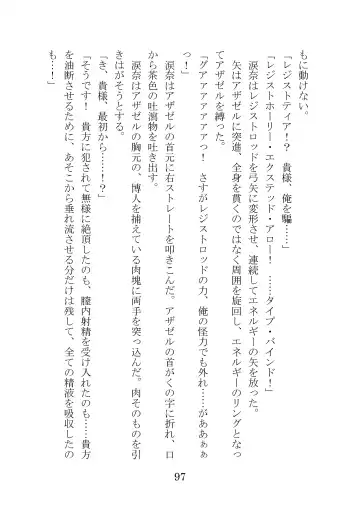 もに動けない。
「レジストティア！？　貴様、俺を騙……」
「レジストホーリー・エクステッド・アロー！　……タイプ・バインド！」
涙奈はレジストロッドを弓矢に変形させ、連続してエネルギーの矢を放った。
矢はアザゼルに突進、全身を貫くのではなく周囲を旋回し、エネルギーのリングとなっ
てアザゼルを縛った。
「グアァァァァァァっ！　さすがレジストロッドの力、俺の怪力でも外れ……がああぁぁ
っ！」
涙奈はアザゼルの首元に右ストレートを叩きこんだ。アザゼルの首がくの字に折れ、口
から茶色の吐瀉物を吐き出す。
涙奈はアザゼルの胸元の、博人を捕えている肉塊に両手を突っ込んだ。肉そのものを引
きはがそうとする。
「き、貴様、最初から……！？」
「そうです！　貴方に犯されて無様に絶頂したのも、膣内射精を受け入れたのも……貴方
を油断させるために、あそこから垂れ流させる分だけは残して、全ての精液を吸収したの
も…！」
97